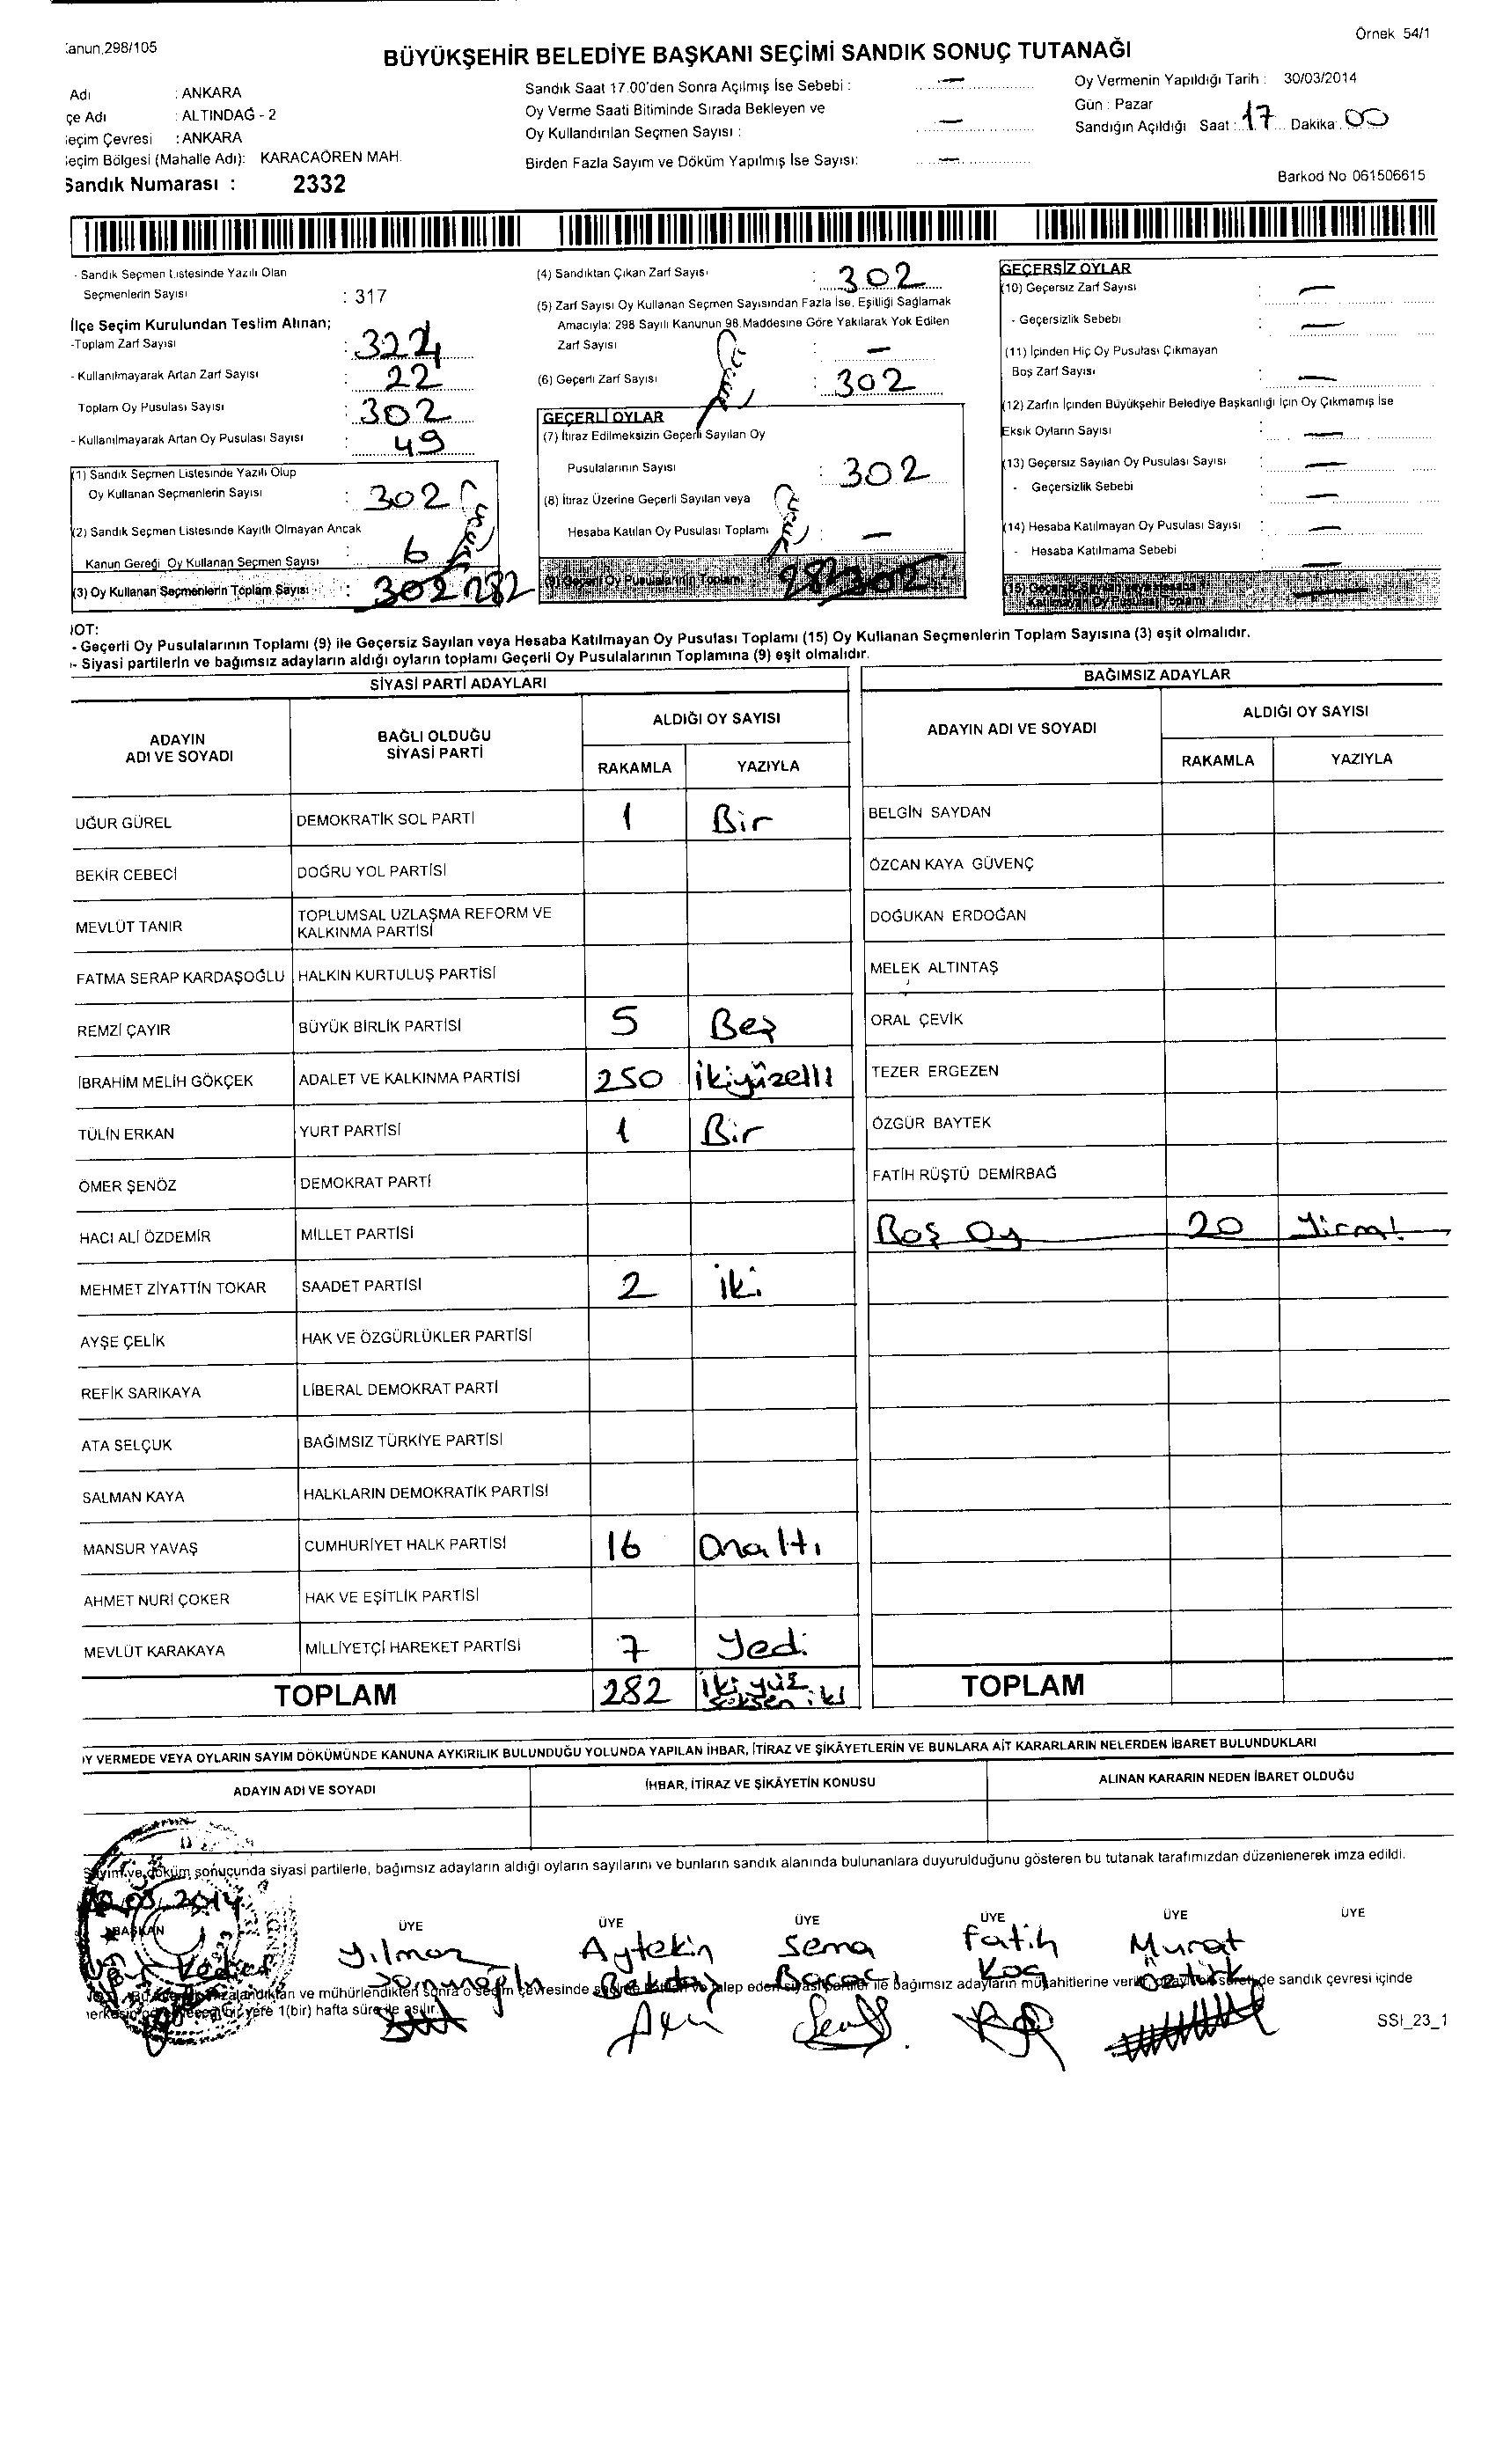 Örnek 54/1
anun,298/105
BÜYÜKŞEHİR BELEDİYE BAŞKANI SEÇİMİ SANDIK SONUÇ TUTANAĞI
Adı : ANKARA
çe Adı : ALTINDAĞ - 2
eçim Çevresi : ANKARA
eçim Bölgesi (Mahalle Adı): KARACAÖREN MAH.
Sandık Numarası : 2332
Sandık Saat 17.00'den Sonra Açılmış İse Sebebi : —
Oy Verme Saati Bitiminde Sırada Bekleyen ve
Oy Kullandırılan Seçmen Sayısı : —
Birden Fazla Sayım ve Döküm Yapılmış İse Sayısı: —
Oy Vermenin Yapıldığı Tarih : 30/03/2014
Gün : Pazar
Sandığın Açıldığı Saat : 17 Dakika: 00
Barkod No 061506615
- Sandık Seçmen Listesinde Yazılı Olan
Seçmenlerin Sayısı : 317
İlçe Seçim Kurulundan Teslim Alınan;
-Toplam Zarf Sayısı : 324
- Kullanılmayarak Artan Zarf Sayısı : 22
Toplam Oy Pusulası Sayısı : 302
- Kullanılmayarak Artan Oy Pusulası Sayısı : 49
(1) Sandık Seçmen Listesinde Yazılı Olup
Oy Kullanan Seçmenlerin Sayısı : 302
(2) Sandık Seçmen Listesinde Kayıtlı Olmayan Ancak
Kanun Gereği Oy Kullanan Seçmen Sayısı : 6
(3) Oy Kullanan Seçmenlerin Toplam Sayısı : 302 282
(4) Sandıktan Çıkan Zarf Sayısı : 302
(5) Zarf Sayısı Oy Kullanan Seçmen Sayısından Fazla İse, Eşitliği Sağlamak
Amacıyla: 298 Sayılı Kanunun 98.Maddesine Göre Yakılarak Yok Edilen
Zarf Sayısı : —
(6) Geçerli Zarf Sayısı : 302
GEÇERLİ OYLAR
(7) İtiraz Edilmeksizin Geçerli Sayılan Oy
Pusulalarının Sayısı : 302
(8) İtiraz Üzerine Geçerli Sayılan veya
Hesaba Katılan Oy Pusulası Toplamı : —
(9) Geçerli Oy Pusulalarının Toplamı 282 302
GEÇERSİZ OYLAR
(10) Geçersiz Zarf Sayısı : —
- Geçersizlik Sebebi : —
(11) İçinden Hiç Oy Pusulası Çıkmayan
Boş Zarf Sayısı : —
(12) Zarfın İçinden Büyükşehir Belediye Başkanlığı İçin Oy Çıkmamış İse
Eksik Oyların Sayısı : —
(13) Geçersiz Sayılan Oy Pusulası Sayısı : —
- Geçersizlik Sebebi : —
(14) Hesaba Katılmayan Oy Pusulası Sayısı : —
- Hesaba Katılmama Sebebi : —
(15) Geçersiz Sayılan veya Hesaba
Katılmayan Oy Pusulası Toplamı —
OT:
- Geçerli Oy Pusulalarının Toplamı (9) ile Geçersiz Sayılan veya Hesaba Katılmayan Oy Pusulası Toplamı (15) Oy Kullanan Seçmenlerin Toplam Sayısına (3) eşit olmalıdır.
- Siyasi partilerin ve bağımsız adayların aldığı oyların toplamı Geçerli Oy Pusulalarının Toplamına (9) eşit olmalıdır.
SİYASİ PARTİ ADAYLARI
ADAYIN ADI VE SOYADI BAĞLI OLDUĞU SİYASİ PARTİ ALDIĞI OY SAYISI
RAKAMLA YAZIYLA
UĞUR GÜREL DEMOKRATİK SOL PARTİ 1 Bir
BEKİR CEBECİ DOĞRU YOL PARTİSİ
MEVLÜT TANIR TOPLUMSAL UZLAŞMA REFORM VE KALKINMA PARTİSİ
FATMA SERAP KARDAŞOĞLU HALKIN KURTULUŞ PARTİSİ
REMZİ ÇAYIR BÜYÜK BİRLİK PARTİSİ 5 Beş
İBRAHİM MELİH GÖKÇEK ADALET VE KALKINMA PARTİSİ 250 ikiyüzelli
TÜLİN ERKAN YURT PARTİSİ 1 Bir
ÖMER ŞENÖZ DEMOKRAT PARTİ
HACI ALİ ÖZDEMİR MİLLET PARTİSİ
MEHMET ZİYATTİN TOKAR SAADET PARTİSİ 2 iki
AYŞE ÇELİK HAK VE ÖZGÜRLÜKLER PARTİSİ
REFİK SARIKAYA LİBERAL DEMOKRAT PARTİ
ATA SELÇUK BAĞIMSIZ TÜRKİYE PARTİSİ
SALMAN KAYA HALKLARIN DEMOKRATİK PARTİSİ
MANSUR YAVAŞ CUMHURİYET HALK PARTİSİ 16 Onaltı
AHMET NURİ ÇOKER HAK VE EŞİTLİK PARTİSİ
MEVLÜT KARAKAYA MİLLİYETÇİ HAREKET PARTİSİ 7 Yedi
TOPLAM 282 iki yüz seksen iki
BAĞIMSIZ ADAYLAR
ADAYIN ADI VE SOYADI ALDIĞI OY SAYISI
RAKAMLA YAZIYLA
BELGİN SAYDAN
ÖZCAN KAYA GÜVENÇ
DOĞUKAN ERDOĞAN
MELEK ALTINTAŞ
ORAL ÇEVİK
TEZER ERGEZEN
ÖZGÜR BAYTEK
FATİH RÜŞTÜ DEMİRBAĞ
Boş Oy 20 Yirmi
TOPLAM
Y VERMEDE VEYA OYLARIN SAYIM DÖKÜMÜNDE KANUNA AYKIRILIK BULUNDUĞU YOLUNDA YAPILAN İHBAR, İTİRAZ VE ŞİKÂYETLERİN VE BUNLARA AİT KARARLARIN NELERDEN İBARET BULUNDUKLARI
ADAYIN ADI VE SOYADI İHBAR, İTİRAZ VE ŞİKÂYETİN KONUSU ALINAN KARARIN NEDEN İBARET OLDUĞU
Sayım ve döküm sonucunda siyasi partilerle, bağımsız adayların aldığı oyların sayılarını ve bunların sandık alanında bulunanlara duyurulduğunu gösteren bu tutanak tarafımızdan düzenlenerek imza edildi.
03.2014
BAŞKAN ÜYE ÜYE ÜYE ÜYE ÜYE ÜYE
Yılmaz Aytekin Sema Fatih Murat
Koç Öztürk
ve mühürlendikten sonra o seçim çevresinde talep eden siyasi partiler ile bağımsız adayların müşahitlerine sandık çevresi içinde
yere 1(bir) hafta süre ile asılır.
SSI_23_1